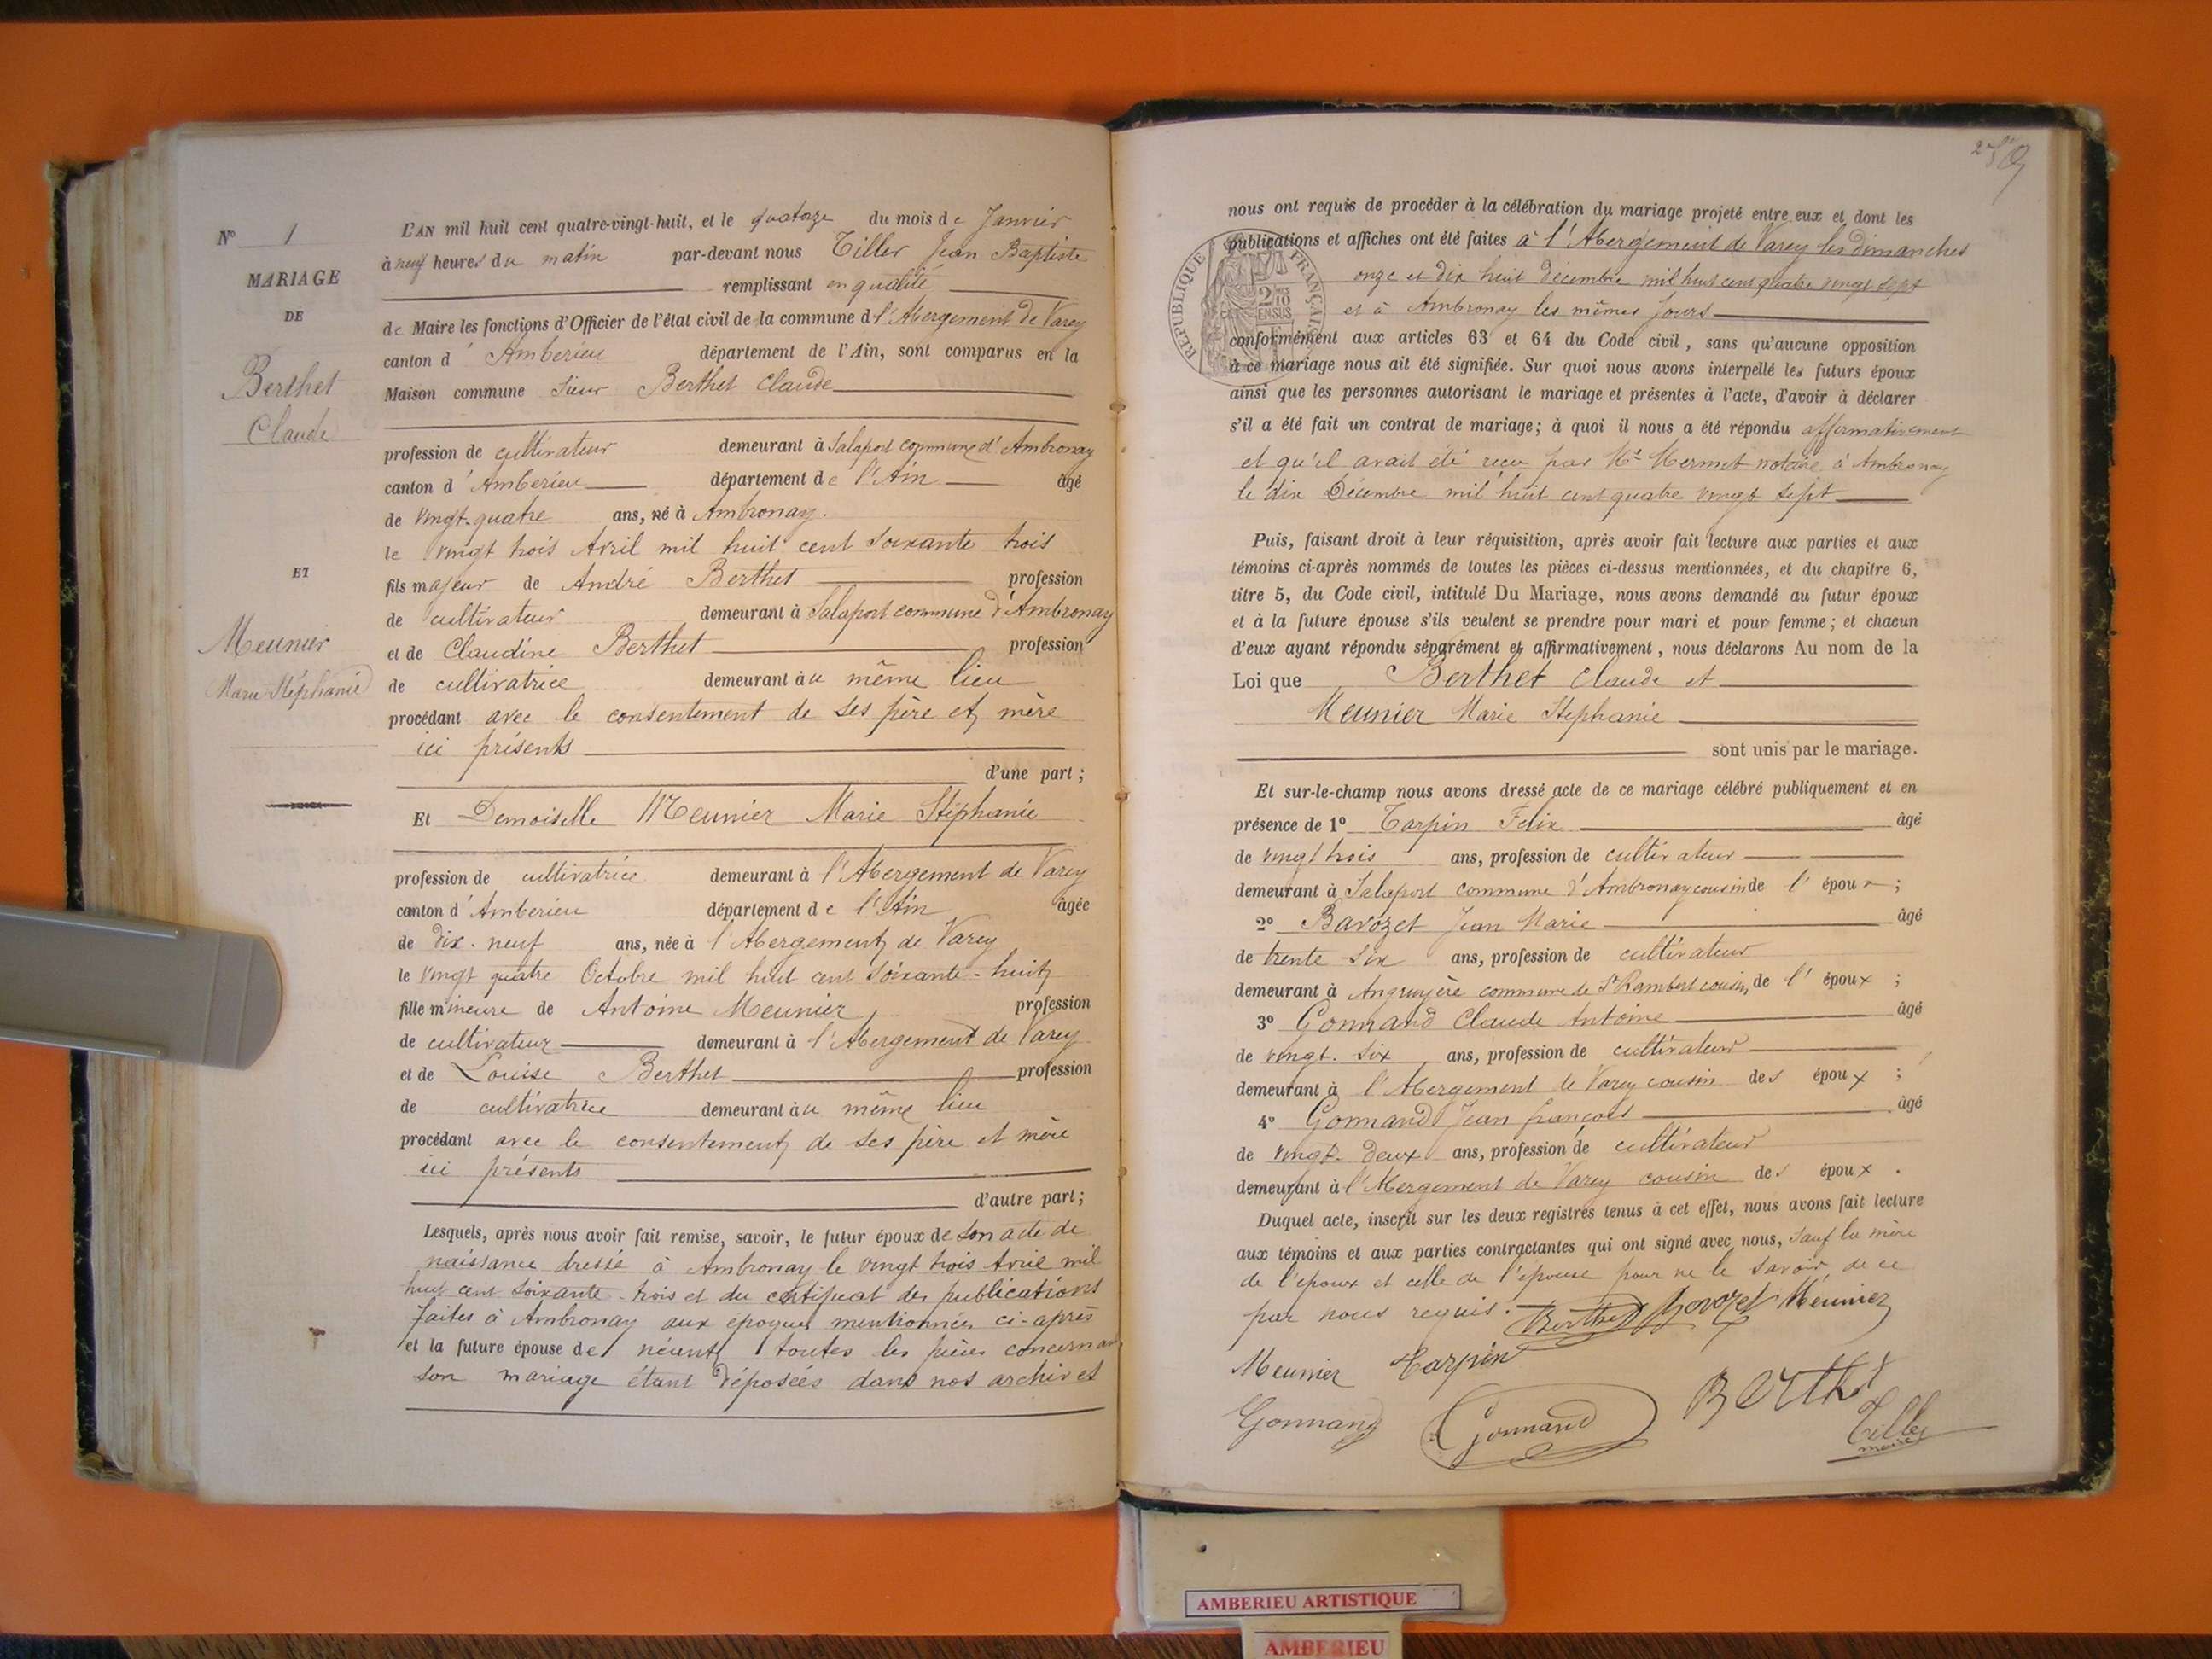 N° 1
MARIAGE
DE
Berthet
Claude
ET
Meunier
Marie Stéphanie
L'AN mil huit cent quatre-vingt-huit, et le quatorze du mois de Janvier
à neuf heures du matin par-devant nous Tiller Jean Baptiste
remplissant en qualité
de Maire les fonctions d'Officier de l'état civil de la commune d l'Abergement de Varey
canton d' Amberieu département de l'Ain, sont comparus en la
Maison commune Sieur Berthet Claude
profession de cultivateur demeurant à Salaport commune d'Ambronay
canton d'Amberieu département de l'Ain âgé
de vingt-quatre ans, né à Ambronay.
le vingt trois Avril mil huit cent soixante trois
fils majeur de André Berthet profession
de cultivateur demeurant à Salaport commune d'Ambronay
et de Claudine Berthet profession
de cultivatrice demeurant au même lieu
procédant avec le consentement de ses père et mère
ici présents
d'une part;
Et Demoiselle Meunier Marie Stéphanie
profession de cultivatrice demeurant à l'Abergement de Varey
canton d'Amberieu département de l'Ain âgée
de dix-neuf ans, née à l'Abergement de Varey
le vingt quatre Octobre mil huit cent soixante-huit
fille mineure de Antoine Meunier profession
de cultivateur demeurant à l'Abergement de Varey
et de Louise Berthet profession
de cultivatrice demeurant au même lieu
procédant avec le consentement de ses père et mère
ici présents
d'autre part;
Lesquels, après nous avoir fait remise, savoir, le futur époux de son acte de
naissance dressé à Ambronay le vingt trois Avril mil
huit cent soixante-trois et du certificat des publications
faites à Ambronay aux époques mentionnées ci-après
et la future épouse de néant toutes les pièces concernant
son mariage étant déposées dans nos archives
nous ont requis de procéder à la célébration du mariage projeté entre eux et dont les
publications et affiches ont été faites à l'Abergement de Varey les dimanches
onze et dix huit décembre mil huit cent quatre vingt sept
et à Ambronay les mêmes jours
REPUBLIQUE FRANÇAISE
conformément aux articles 63 et 64 du Code civil, sans qu'aucune opposition
à ce mariage nous ait été signifiée. Sur quoi nous avons interpellé les futurs époux
ainsi que les personnes autorisant le mariage et présentes à l'acte, d'avoir à déclarer
s'il a été fait un contrat de mariage; à quoi il nous a été répondu affirmativement
et qu'il avait été reçu par Me Mermet notaire à Ambronay
le dix Décembre mil huit cent quatre vingt sept
Puis, faisant droit à leur réquisition, après avoir fait lecture aux parties et aux
témoins ci-après nommés de toutes les pièces ci-dessus mentionnées, et du chapitre 6,
titre 5, du Code civil, intitulé Du Mariage, nous avons demandé au futur époux
et à la future épouse s'ils veulent se prendre pour mari et pour femme; et chacun
d'eux ayant répondu séparément et affirmativement, nous déclarons Au nom de la
Loi que Berthet Claude et
Meunier Marie Stephanie
sont unis par le mariage.
Et sur-le-champ nous avons dressé acte de ce mariage célébré publiquement et en
présence de 1° Tarpin Felix âgé
de vingt trois ans, profession de cultivateur
demeurant à Salaport commune d'Ambronay cousin de l' époux;
2° Bavozet Jean Marie âgé
de trente six ans, profession de cultivateur
demeurant à Angruyère commune de St Rambert cousin, de l' époux;
3° Gonnand Claude Antoine âgé
de vingt-six ans, profession de cultivateur
demeurant à l'Abergement de Varey cousin des époux;
4° Gonnand Jean françois âgé
de vingt-deux ans, profession de cultivateur
demeurant à l'Abergement de Varey cousin des époux.
Duquel acte, inscrit sur les deux registres tenus à cet effet, nous avons fait lecture
aux témoins et aux parties contractantes qui ont signé avec nous, sauf la mère
de l'époux et celle de l'épouse pour ne le savoir, de ce
par nous requis. Berthet Bovozet Meunier
Meunier Tarpin
Gonnand Gonnand Berthet Tiller
maire
AMBERIEU ARTISTIQUE
AMBERIEU